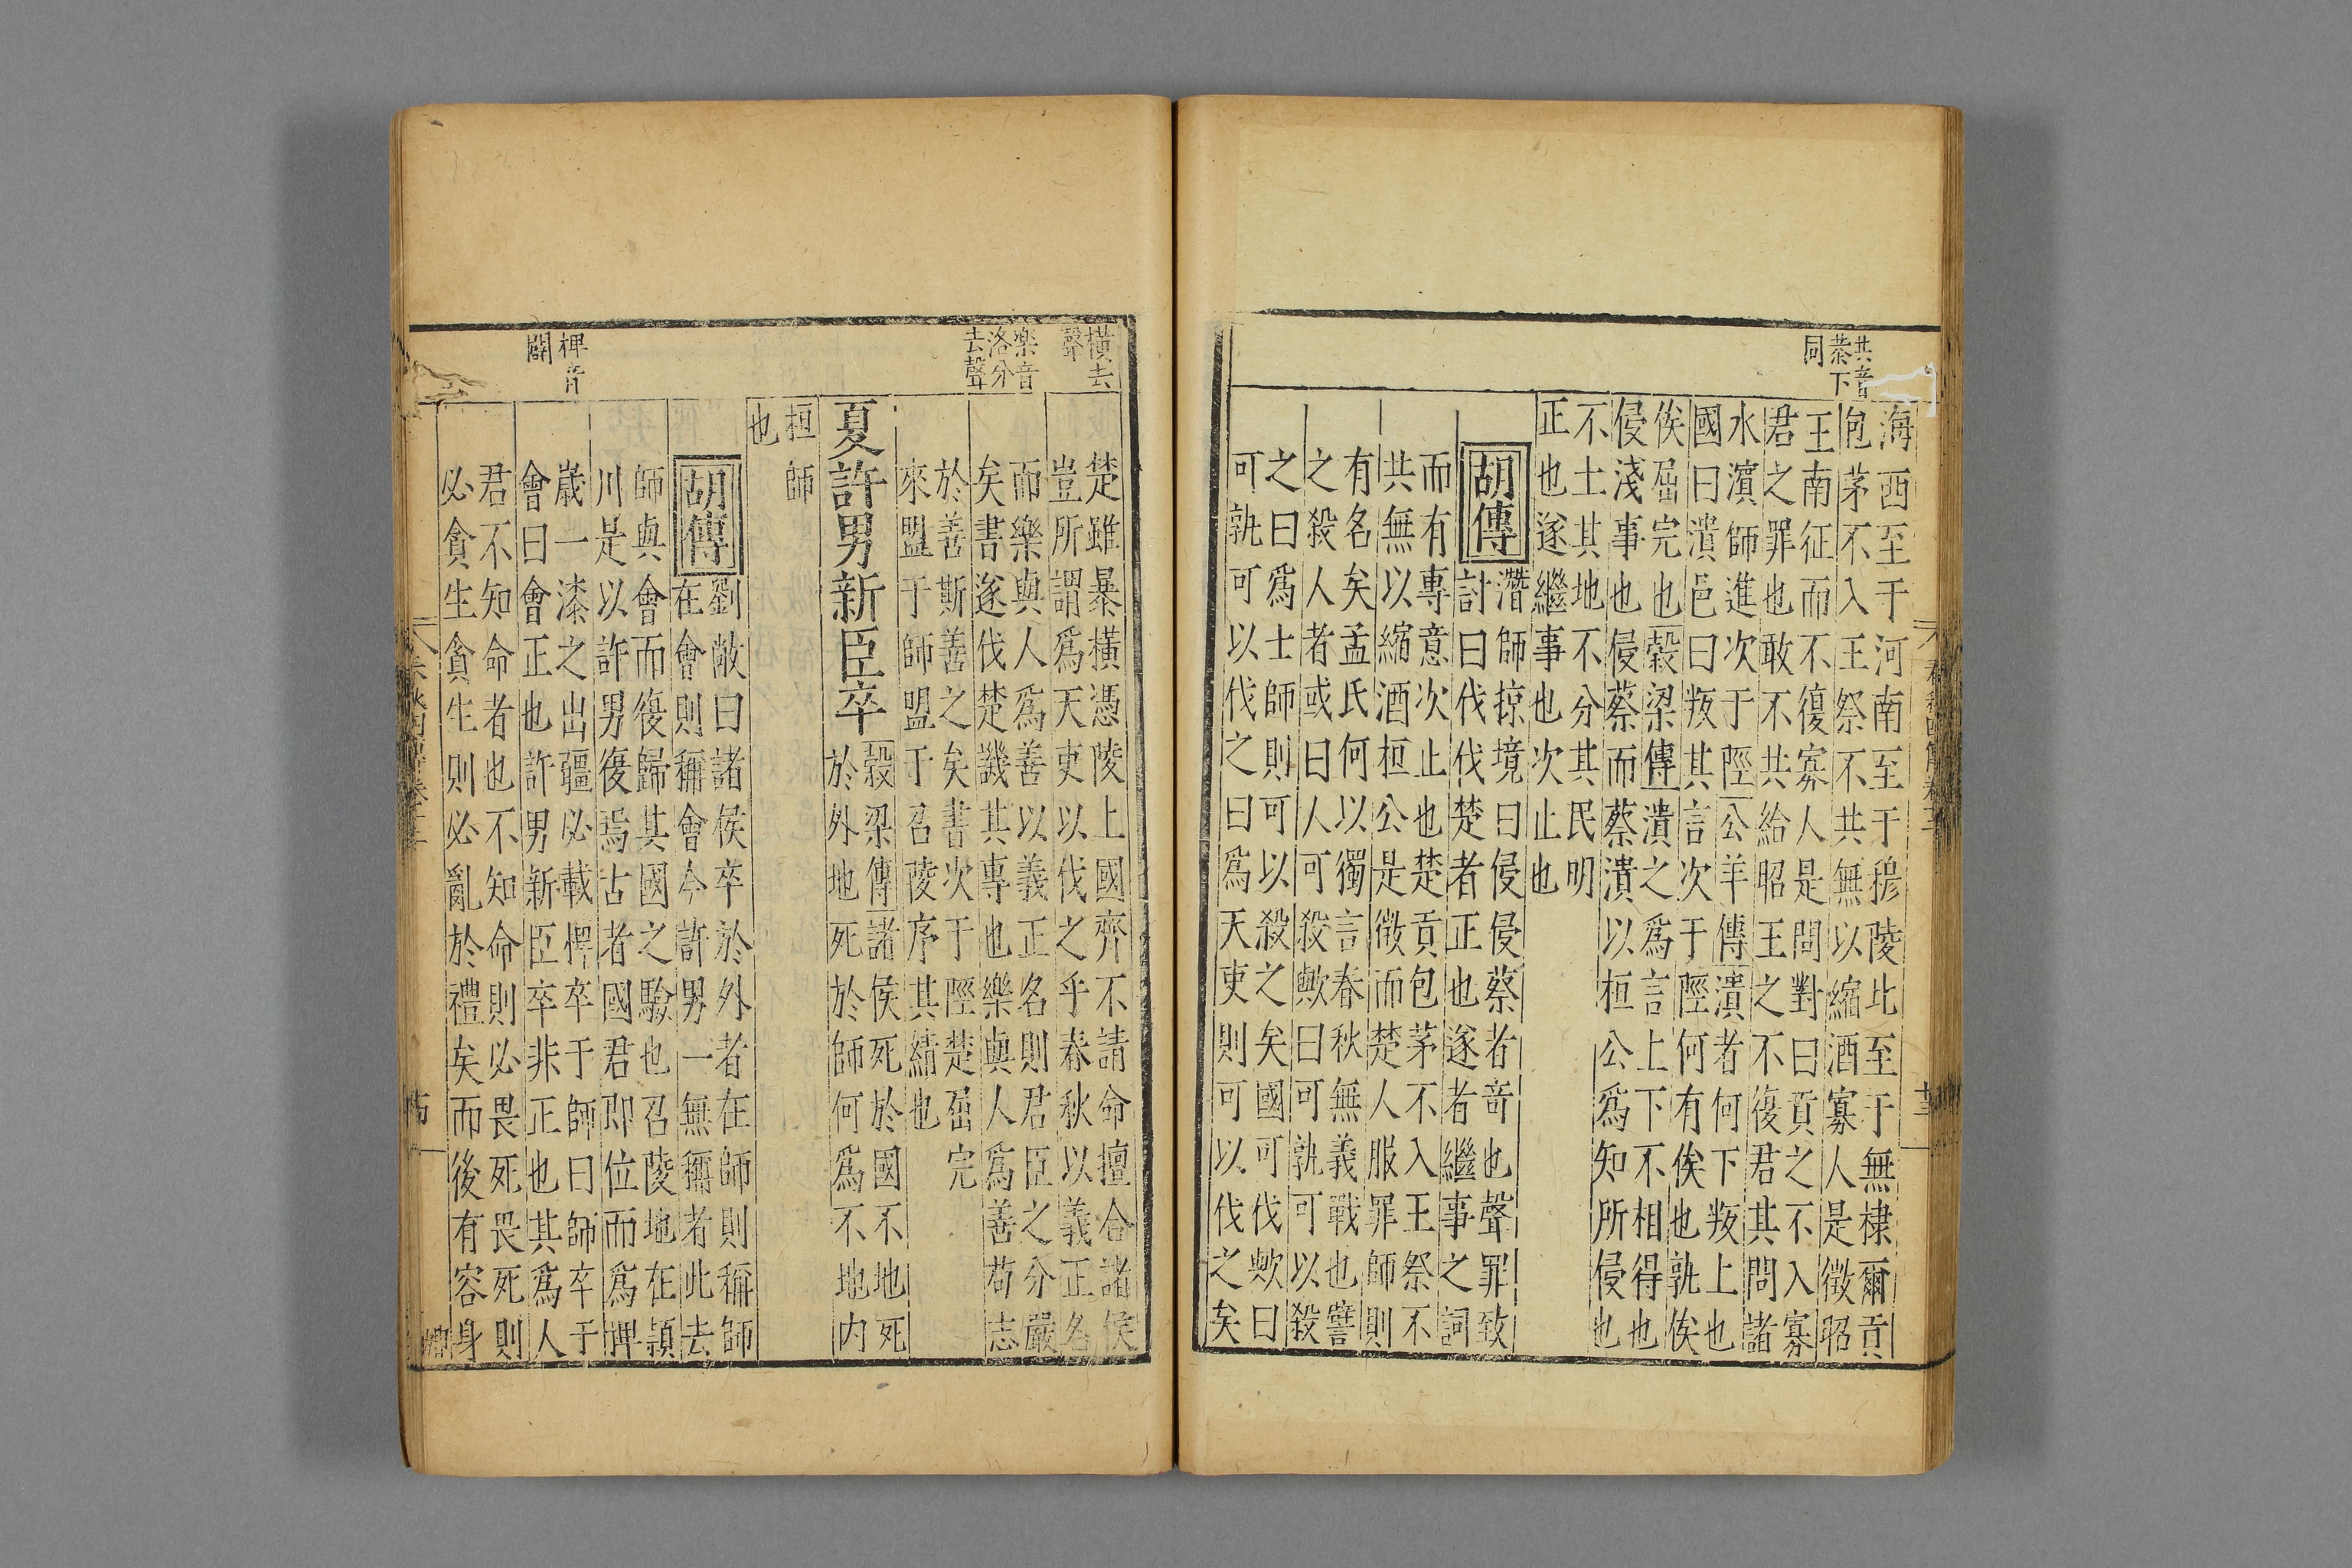 共音
恭下
同
海西至于河南至于穆陵此至于無棣爾貢
包茅不入王祭不共無以縮酒寡人是徵昭
王南征而不復寡人是問對曰貢之不入寡
君之罪也敢不共給昭王之不復君其問諸
水濵師進次于陘公羊傳潰者何下叛上也
國曰潰邑曰叛其言次于陘何有俟也孰俟
俟屈完也穀梁傳潰之爲言上下不相得也
侵淺事也侵蔡而蔡潰以桓公爲知所侵也
不土其地不分其民明
正也遂繼事也次止也
胡傳
潛師掠境曰侵侵蔡者竒也聲罪致
討曰伐伐楚者正也遂者繼事之詞
而有專意次止也楚貢包茅不入王祭不
共無以縮酒桓公是徵而楚人服罪師則
有名矣孟氏何以獨言春秋無義戰也譬
之殺人者或曰人可殺歟曰可孰可以殺
之曰爲士師則可以殺之矣國可伐歟曰
可孰可以伐之曰爲天吏則可以伐之矣
橫去
聲
樂音
洛分
去聲
楚雖暴橫憑陵上國齊不請命擅合諸侯
豈所謂爲天吏以伐之乎春秋以義正名
而樂與人爲善以義正名則君臣之分嚴
矣書遂伐楚譏其專也樂與人爲善苟志
於善斯善之矣書次于陘楚屈完
來盟于師盟于召陵序其績也
夏許男新臣卒
穀梁傳諸侯死於國不地死
於外地死於師何爲不地内
桓師
也
胡傳
劉敞曰諸侯卒於外者在師則稱師
在會則稱會今許男一無稱者此去
師與會而復歸其國之驗也召陵地在潁
川是以許男復焉古者國君即位而爲椑
椑音
闢
歲一漆之出疆必載椑卒于師曰師卒于
會曰會正也許男新臣卒非正也其爲人
君不知命者也不知命則必畏死畏死則
必貪生貪生則必亂於禮矣而後有容身